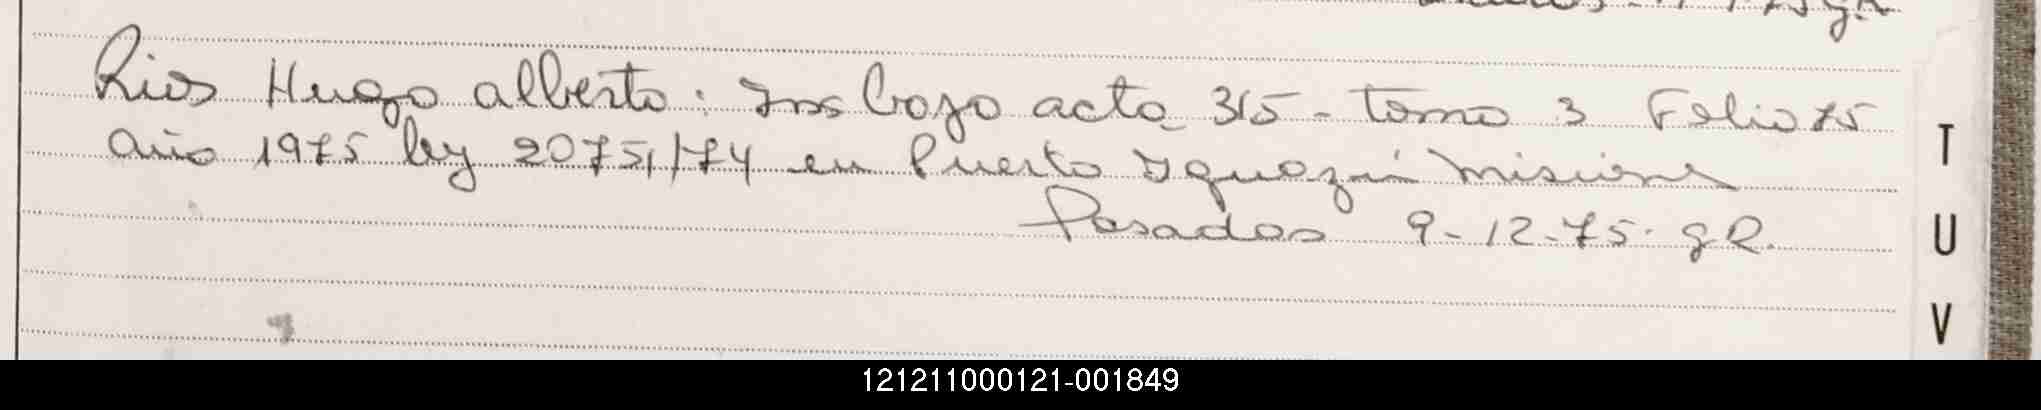 Rios Hugo alberto: Ins bajo acta 315 - tomo 3 Folio 75
año 1975 ley 20751/74 en Puerto Iguazú Misiones
Posadas 9-12-75. gR.
T
U
V
121211000121-001849